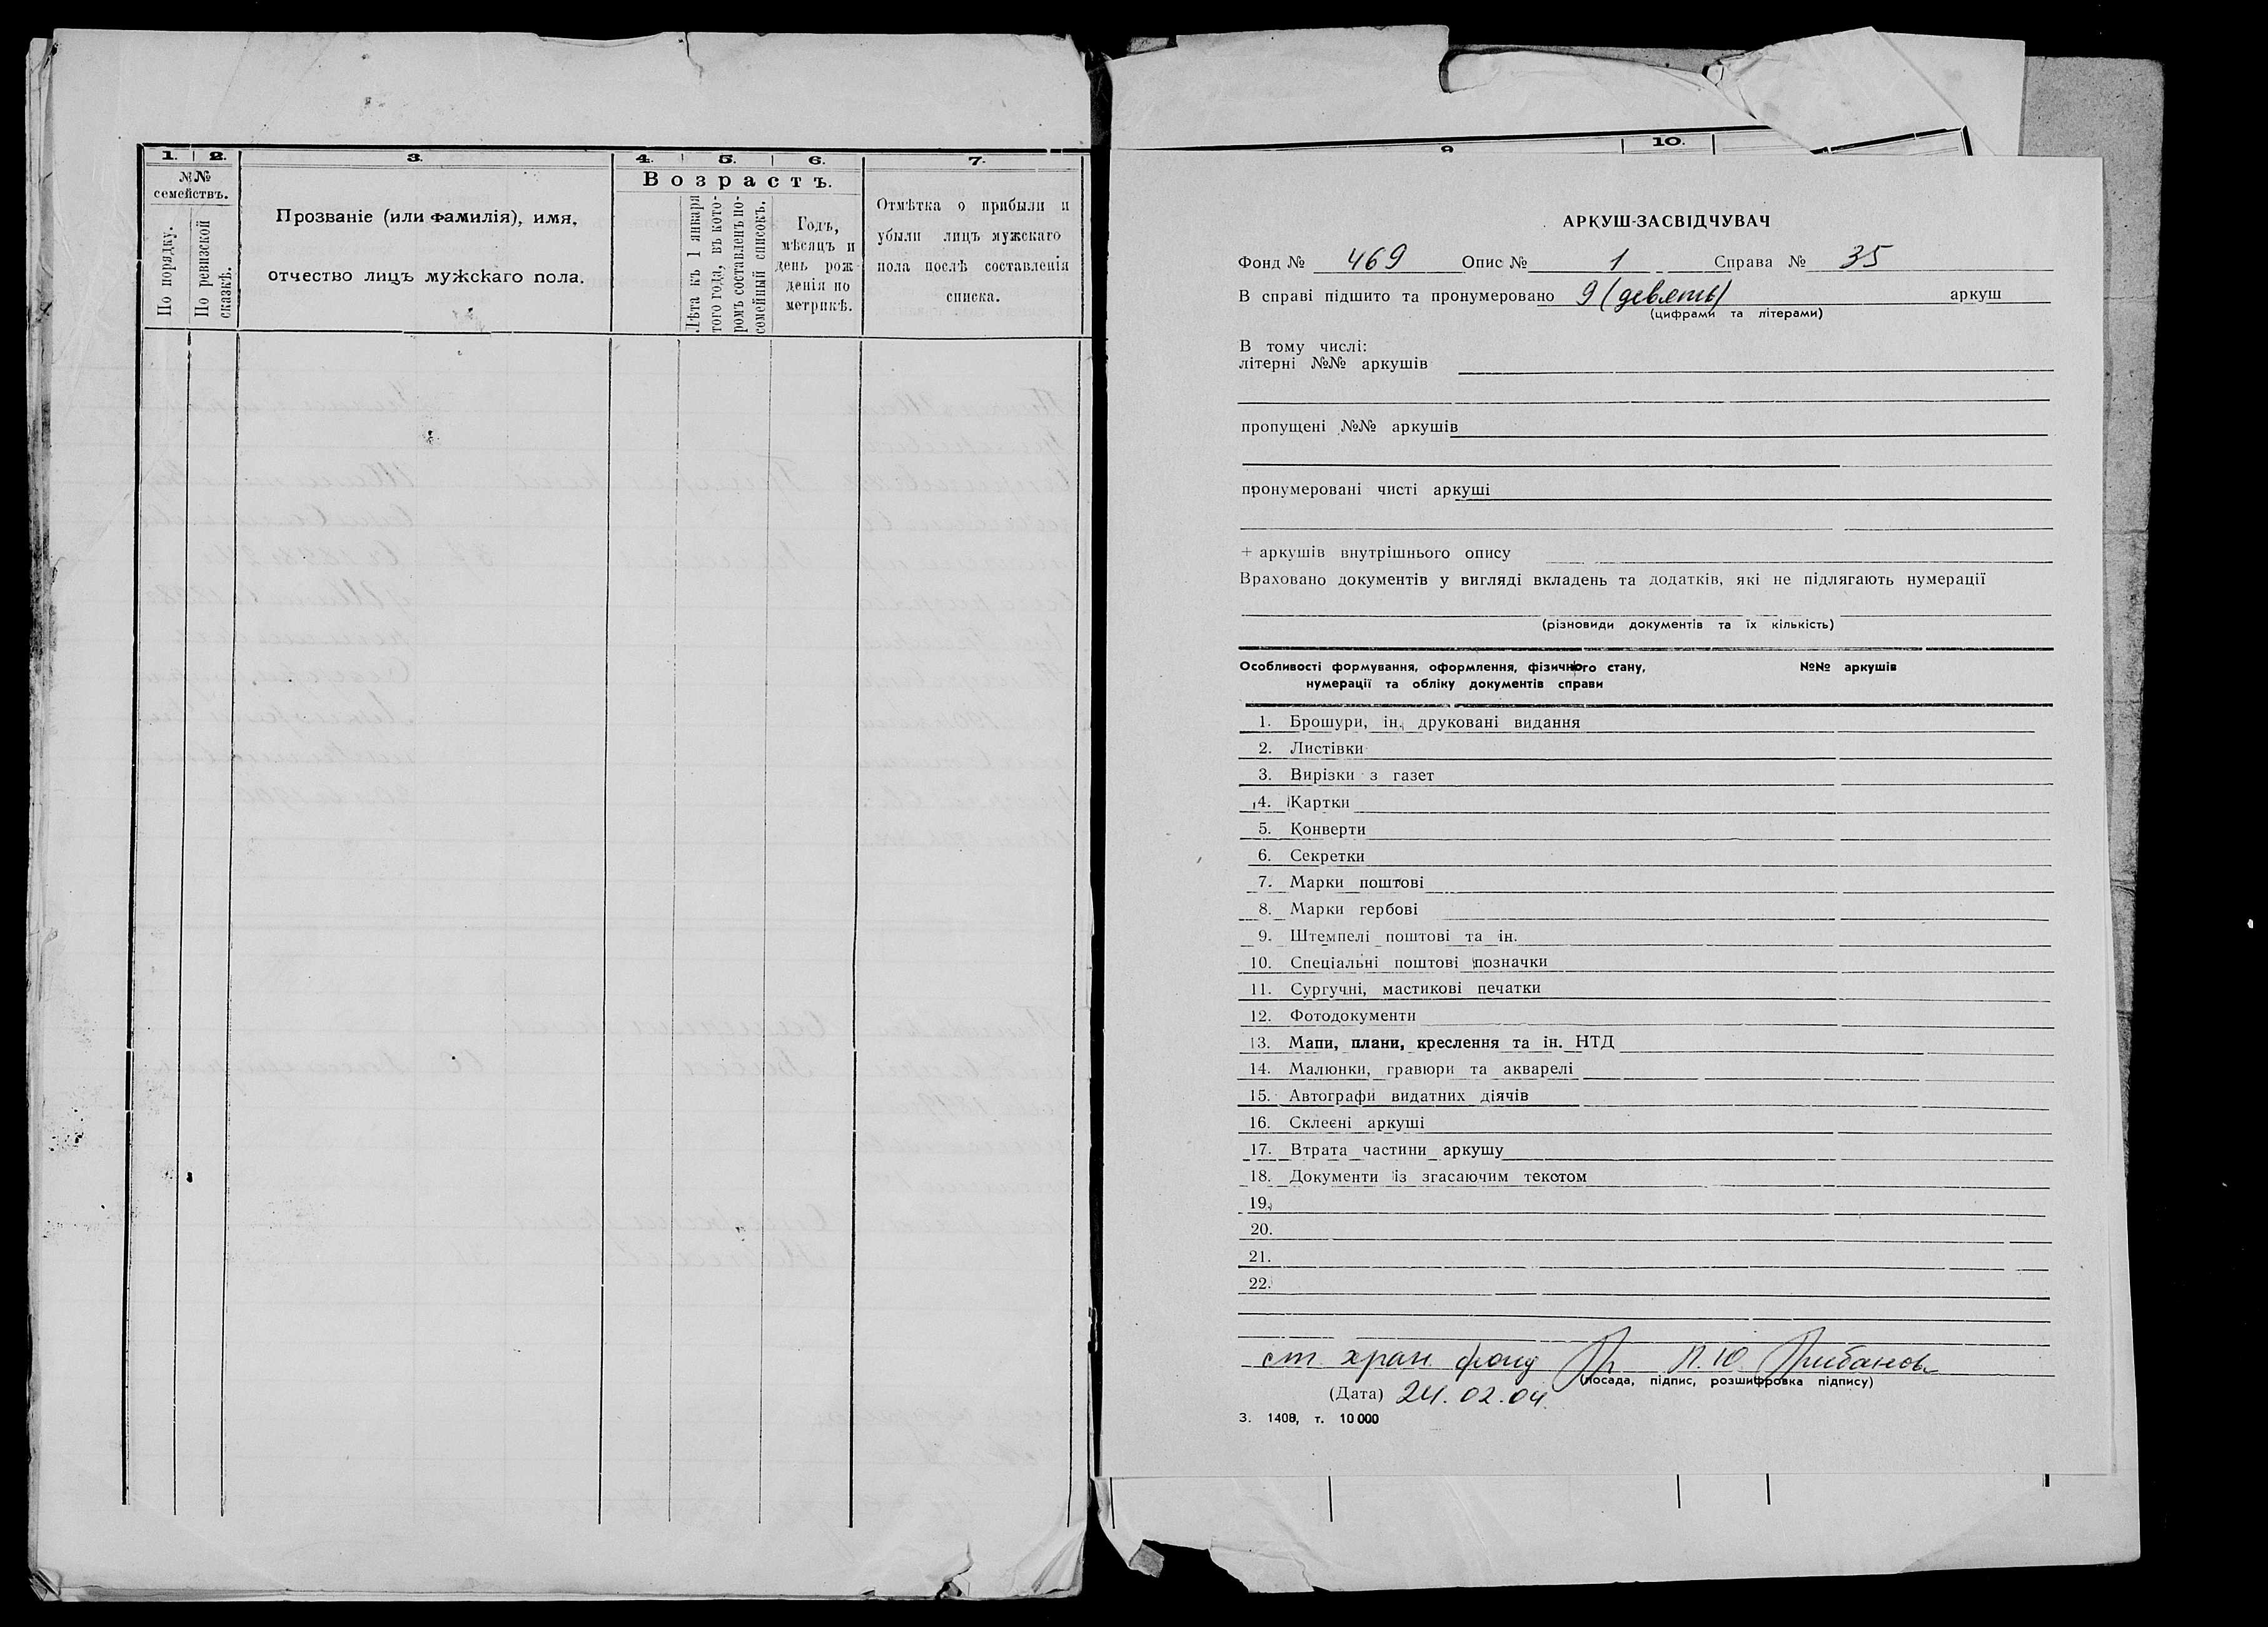 1. 2. 3. 4. 5. 6. 7.
№№ семействъ.
По порядку.
По ревизской сказкѣ.
Прозваніе (или фамилія), имя,
отчество лицъ мужскаго пола.
Возрастъ.
Лѣта къ 1 января
того года, въ кото-
ромъ составленъ по-
семейный списокъ.
Годъ,
мѣсяцъ и
день рож
денія по
метрикѣ.
Отмѣтка о прибыли и
убыли лицъ мужскаго
пола послѣ составленія
списка.
9 10.
АРКУШ-ЗАСВІДЧУВАЧ
Фонд № 469 Опис № 1 Справа № 35
В справі підшито та пронумеровано 9 (девять) аркуш
(цифрами та літерами)
В тому числі:
літерні №№ аркушів
пропущені №№ аркушів
пронумеровані чисті аркуші
+ аркушів внутрішнього опису
Враховано документів у вигляді вкладень та додатків, які не підлягають нумерації
(різновиди документів та їх кількість)
Особливості формування, оформлення, фізичного стану, №№ аркушів
нумерації та обліку документів справи
1. Брошури, ін. друковані видання
2. Листівки
3. Вирізки з газет
4. Картки
5. Конверти
6. Секретки
7. Марки поштові
8. Марки гербові
9. Штемпелі поштові та ін.
10. Спеціальні поштові позначки
11. Сургучні, мастикові печатки
12. Фотодокументи
13. Мапи, плани, креслення та ін. НТД
14. Малюнки, гравюри та акварелі
15. Автографи видатних діячів
16. Склеєні аркуші
17. Втрата частини аркушу
18. Документи із згасаючим текстом
19.
20.
21.
22.
ст. хран. фонд
(посада, підпис, розшифровка підпису)
(Дата) 24.02.04.
З. 1408, т. 10 000